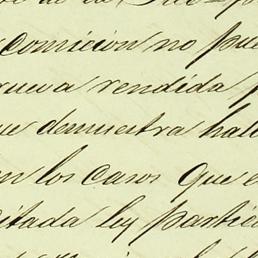 comicion no pue
rueva rendida p
ue demuestra hab
en los casos que e
itada ley partic